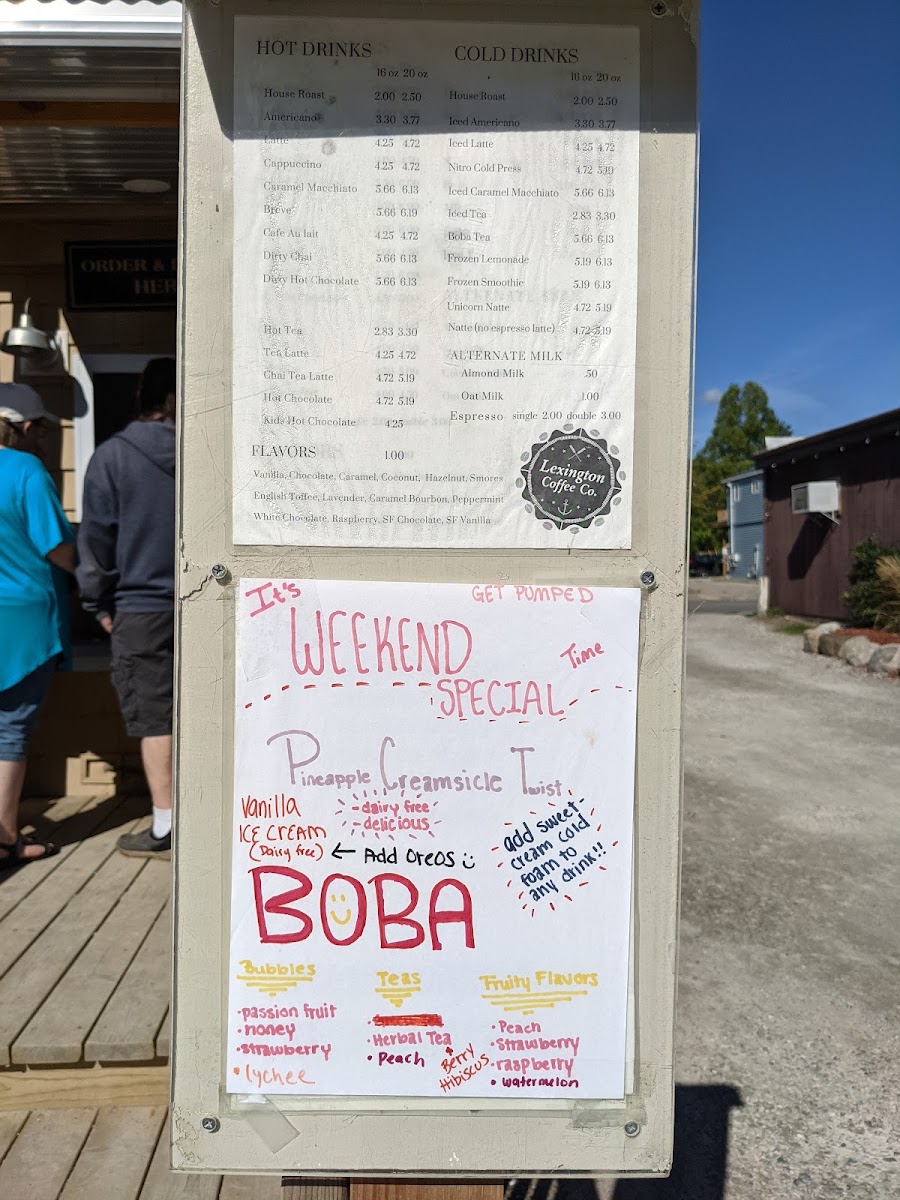 ORDER &
HER
HOT DRINKS
16 oz 20 oz
House Roast 2.00 2.50
Americano 3.30 3.77
Latte 4.25 4.72
Cappuccino 4.25 4.72
Caramel Macchiato 5.66 6.13
Breve 5.66 6.19
Cafe Au lait 4.25 4.72
Dirty Chai 5.66 6.13
Dirty Hot Chocolate 5.66 6.13
Hot Tea 2.83 3.30
Tea Latte 4.25 4.72
Chai Tea Latte 4.72 5.19
Hot Chocolate 4.72 5.19
Kids Hot Chocolate 4.25
FLAVORS 1.00
Vanilla, Chocolate, Caramel, Coconut, Hazelnut, Smores
English Toffee, Lavender, Caramel Bourbon, Peppermint
White Chocolate, Raspberry, SF Chocolate, SF Vanilla
COLD DRINKS
16 oz 20 oz
House Roast 2.00 2.50
Iced Americano 3.30 3.77
Iced Latte 4.25 4.72
Nitro Cold Press 4.72 5.19
Iced Caramel Macchiato 5.66 6.13
Iced Tea 2.83 3.30
Boba Tea 5.66 6.13
Frozen Lemonade 5.19 6.13
Frozen Smoothie 5.19 6.13
Unicorn Natte 4.72 5.19
Natte (no espresso latte) 4.72 5.19
ALTERNATE MILK
Almond Milk .50
Oat Milk 1.00
Espresso single 2.00 double 3.00
Lexington
Coffee Co.
It's
GET PUMPED
WEEKEND
Time
SPECIAL
Pineapple Creamsicle Twist
- dairy free
- delicious
Vanilla
ICE CREAM
(Dairy free)
← Add Oreos
add sweet
cream cold
foam to
any drink!!
BOBA
Bubbles
• passion fruit
• honey
• strawberry
• lychee
Teas
• Herbal Tea
• Peach
Berry
Hibiscus
Fruity Flavors
• Peach
• Strawberry
• raspberry
• watermelon